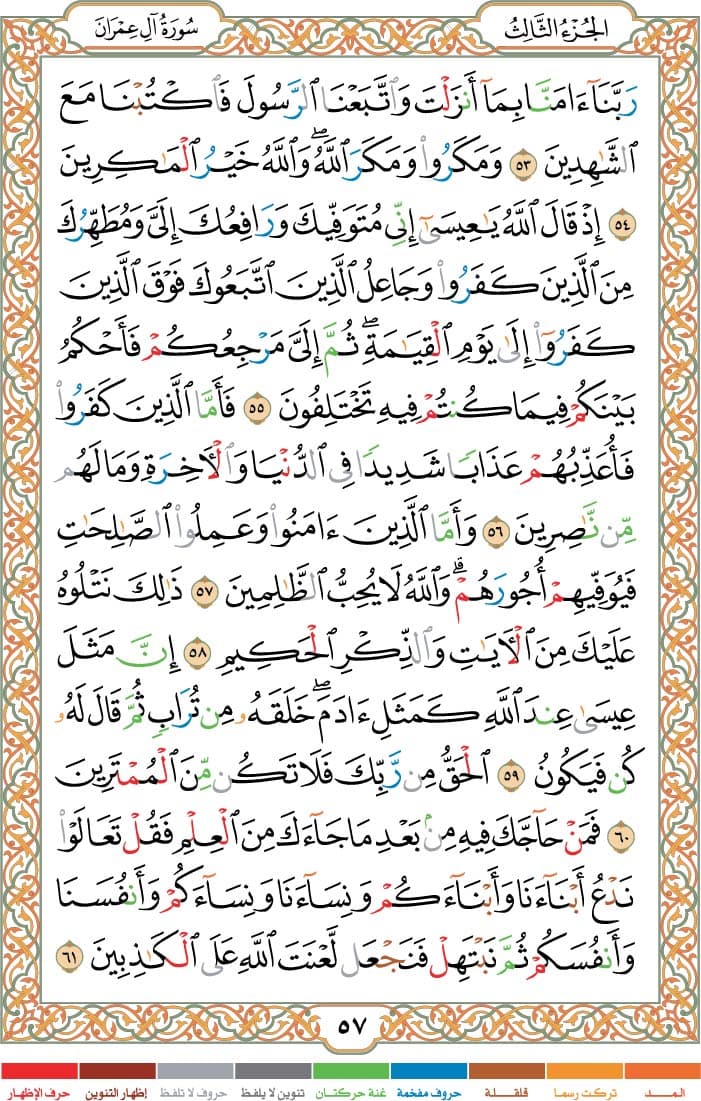 الجُزءُ الثَّالِثُ
سُورَةُ آلِ عِمْرَانَ
رَبَّنَآ ءَامَنَّا بِمَآ أَنزَلْتَ وَٱتَّبَعْنَا ٱلرَّسُولَ فَٱكْتُبْنَا مَعَ
ٱلشَّٰهِدِينَ ٥٣ وَمَكَرُوا۟ وَمَكَرَ ٱللَّهُ ۖ وَٱللَّهُ خَيْرُ ٱلْمَٰكِرِينَ
٥٤ إِذْ قَالَ ٱللَّهُ يَٰعِيسَىٰٓ إِنِّى مُتَوَفِّيكَ وَرَافِعُكَ إِلَىَّ وَمُطَهِّرُكَ
مِنَ ٱلَّذِينَ كَفَرُوا۟ وَجَاعِلُ ٱلَّذِينَ ٱتَّبَعُوكَ فَوْقَ ٱلَّذِينَ
كَفَرُوٓا۟ إِلَىٰ يَوْمِ ٱلْقِيَٰمَةِ ۖ ثُمَّ إِلَىَّ مَرْجِعُكُمْ فَأَحْكُمُ
بَيْنَكُمْ فِيمَا كُنتُمْ فِيهِ تَخْتَلِفُونَ ٥٥ فَأَمَّا ٱلَّذِينَ كَفَرُوا۟
فَأُعَذِّبُهُمْ عَذَابًا شَدِيدًا فِى ٱلدُّنْيَا وَٱلْـَٔاخِرَةِ وَمَا لَهُم
مِّن نَّٰصِرِينَ ٥٦ وَأَمَّا ٱلَّذِينَ ءَامَنُوا۟ وَعَمِلُوا۟ ٱلصَّٰلِحَٰتِ
فَيُوَفِّيهِمْ أُجُورَهُمْ ۗ وَٱللَّهُ لَا يُحِبُّ ٱلظَّٰلِمِينَ ٥٧ ذَٰلِكَ نَتْلُوهُ
عَلَيْكَ مِنَ ٱلْـَٔايَٰتِ وَٱلذِّكْرِ ٱلْحَكِيمِ ٥٨ إِنَّ مَثَلَ
عِيسَىٰ عِندَ ٱللَّهِ كَمَثَلِ ءَادَمَ ۖ خَلَقَهُۥ مِن تُرَابٍ ثُمَّ قَالَ لَهُۥ
كُن فَيَكُونُ ٥٩ ٱلْحَقُّ مِن رَّبِّكَ فَلَا تَكُن مِّنَ ٱلْمُمْتَرِينَ
٦٠ فَمَنْ حَآجَّكَ فِيهِ مِنۢ بَعْدِ مَا جَآءَكَ مِنَ ٱلْعِلْمِ فَقُلْ تَعَالَوْا۟
نَدْعُ أَبْنَآءَنَا وَأَبْنَآءَكُمْ وَنِسَآءَنَا وَنِسَآءَكُمْ وَأَنفُسَنَا
وَأَنفُسَكُمْ ثُمَّ نَبْتَهِلْ فَنَجْعَل لَّعْنَتَ ٱللَّهِ عَلَى ٱلْكَٰذِبِينَ ٦١
٥٧
المــد تركت رسما قلقـلة حروف مفخمة غنة حركتان تنوين لا يلفظ حروف لا تلفظ إظهار التنوين حرف الإظهار